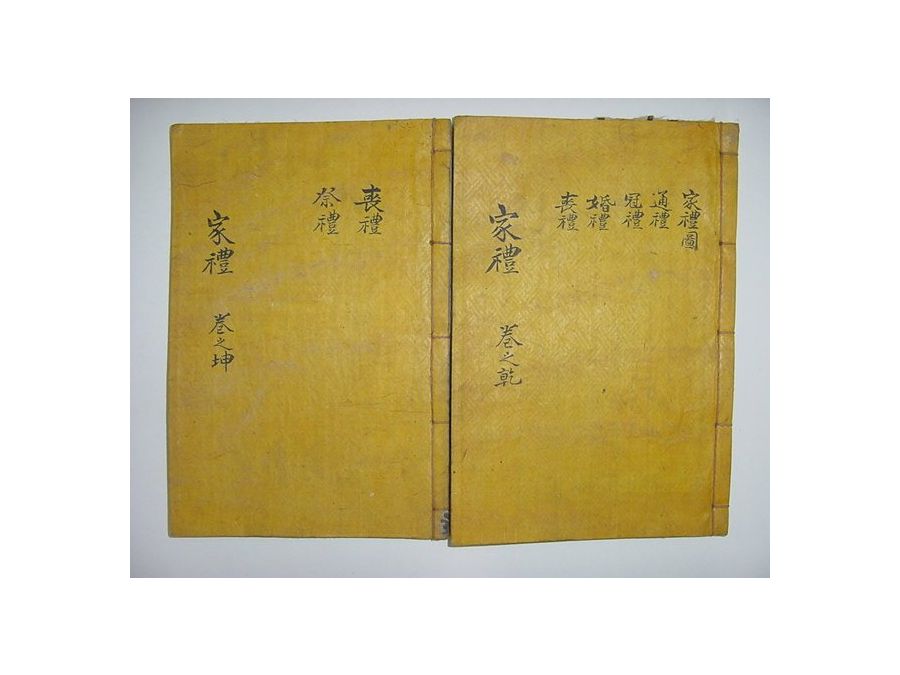 家禮圖
通禮
冠禮
婚禮
喪禮
家禮 卷之乾
喪禮
祭禮
家禮 卷之坤